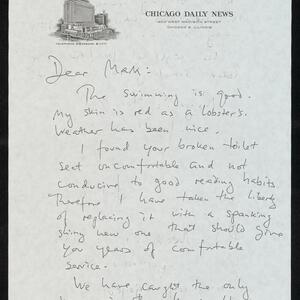 CHICAGO DAILY NEWS
400 WEST MADISON STREET
CHICAGO 6, ILLINOIS
Dear Mark:
The swimming is good.
My skin is red as a lobster's.
Weather has been nice.
I found your broken toilet
seat uncomfortable and not
conducive to good reading habits.
Therefore I have taken the liberty
of replacing it with a spanking
shiny new one that should give
you years of comfortable
service.
We have caught the only